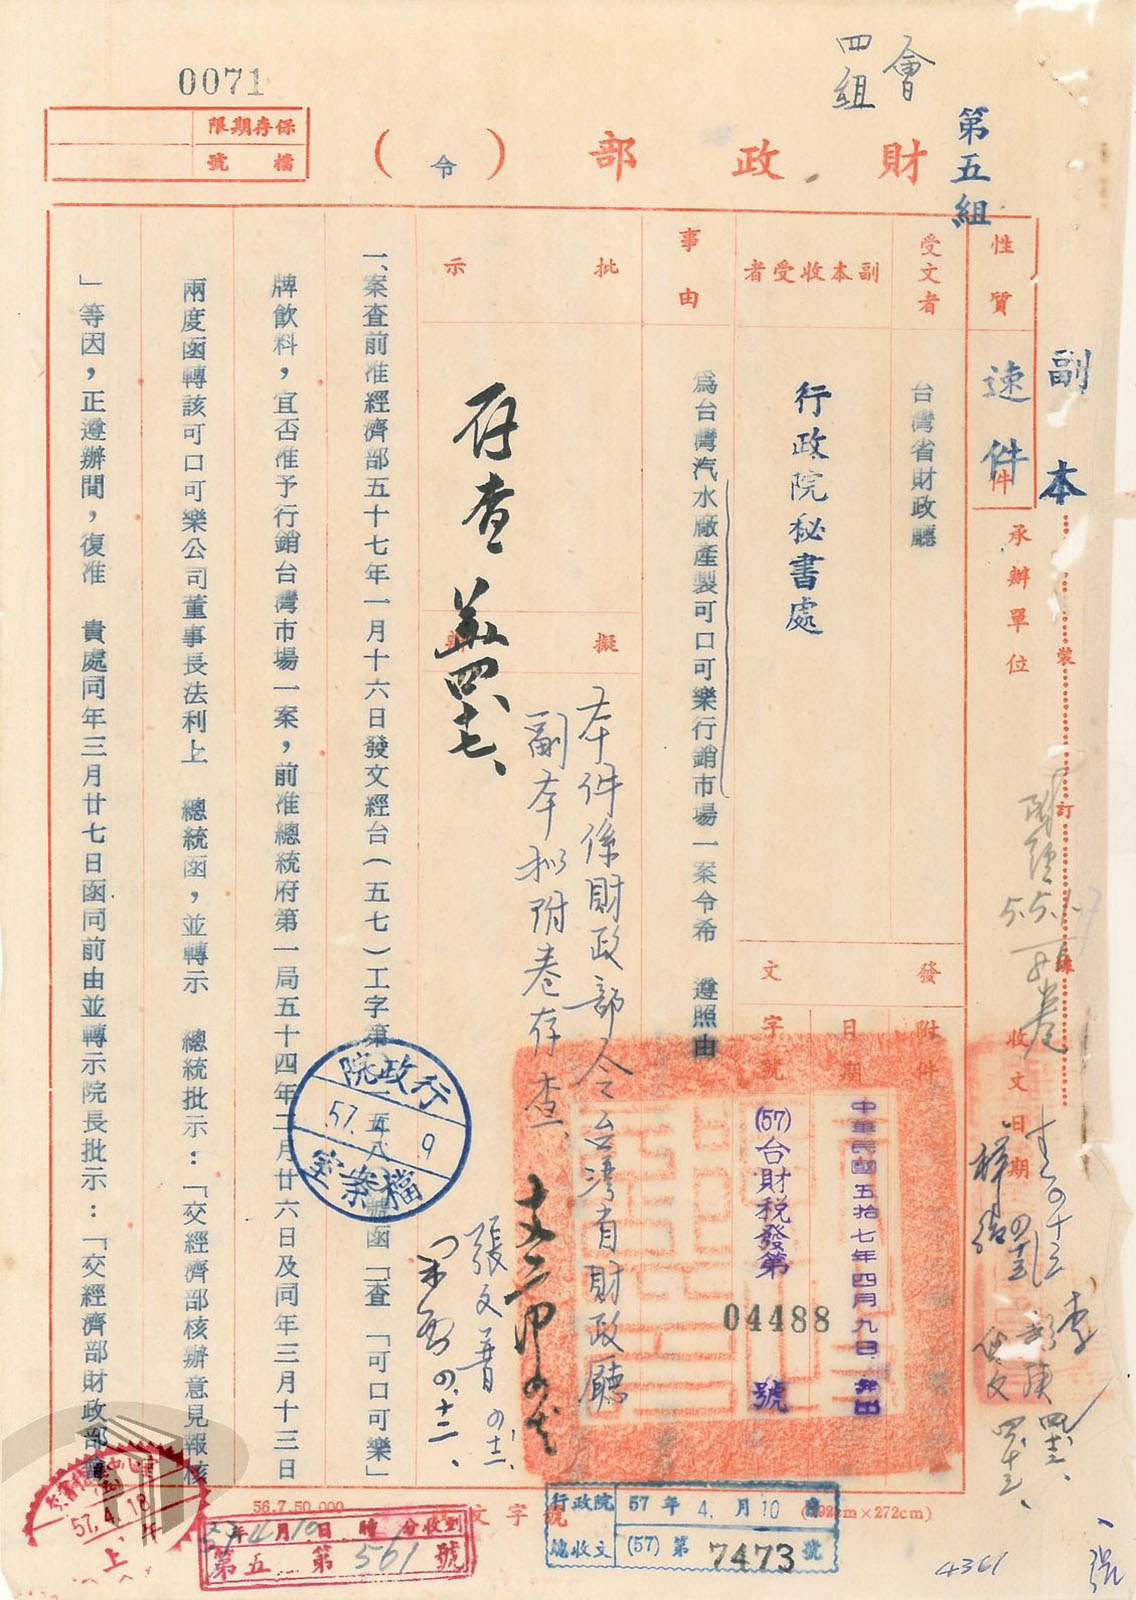 0071
會
四組
第五組
財政部（令）
保存期限
檔號
副本
性質
速件
承辦單位
裝
訂
線
受文者
台灣省財政廳
副本收受者
行政院秘書處
發文
附件
日期
中華民國五拾七年四月九日
字號
(57)台財稅發第
04488
號
收文日期
事由
為台灣汽水廠產製可口可樂行銷市場一案令希　遵照由
批示
擬辦
存查
本件係財政部令台灣省財政廳
副本擬附卷存查
張文普
一、案查前准經濟部五十七年一月十六日發文經台(五七)工字第一五八號函「查「可口可樂」
牌飲料，宜否准予行銷台灣市場一案，前准總統府第一局五十四年二月廿六日及同年三月十三日
兩度函轉該可口可樂公司董事長法利上　總統函，並轉示　總統批示：「交經濟部核辦意見報核
」等因，正遵辦間，復准　貴處同年三月廿七日函同前由並轉示院長批示：「交經濟部財政部
行政院
57. 9
檔案室
57.4.18
上
56.7.50,000
57年4月10日 時 分收到
第五 第561號
文字號
行政院
總收文
57年4.月10日
(57)第7473號
4361